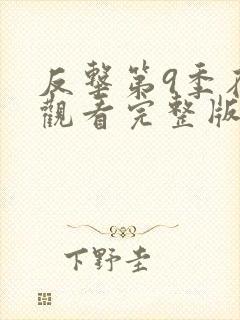 反擊第9季在
觀看完整版
下野圭